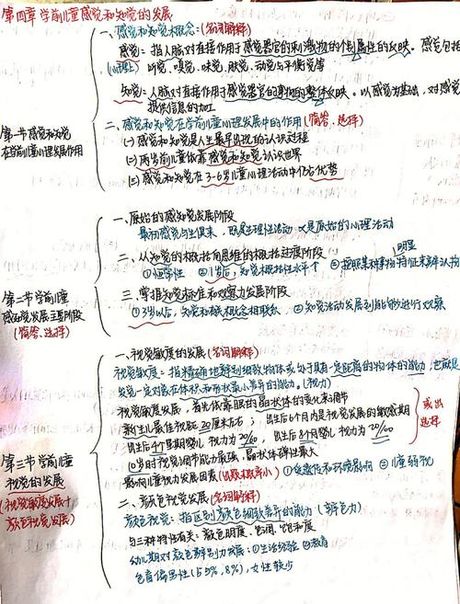 第四章 学前儿童感觉和知觉的发展
第一节 感觉和知觉
在学前儿童心理发展中的作用
一、感觉和知觉概念:(名词解释)
感觉:指人脑对直接作用于感觉器官的刺激物的个别属性的反映。感觉包括
听觉、嗅觉、味觉、肤觉、动觉与平衡觉等
知觉:人脑对直接作用于感觉器官的事物的整体反映。以感觉为基础,对感觉
提供信息的加工
二、感觉和知觉在学前儿童心理发展中的作用(简答、选择)
(一)感觉和知觉是人生最早出现的认识过程
(二)两岁前儿童依靠感觉和知觉认识世界
(三)感觉和知觉在3-6岁儿童心理活动中仍占优势
第二节 学前儿童
感知觉发展主要阶段
(简答、选择)
一、原始的感知觉发展阶段
最初感觉与生俱来,既是生理性活动 又是原始的心理活动
二、从知觉的概括向思维的概括过渡阶段
①恒常性 ②1岁后,知觉概括性水平 ③ 明显
三、掌握知觉标准和观察力发展阶段
①3岁以后,知觉和概念相联系 ②知觉活动发展到能够进行观察
第三节 学前儿童
视觉的发展
(视觉敏度发展+
颜色视觉发展)
一、视觉敏度的发展(名词解释)
视觉敏度:指精确地辨别细致物体或处于具有一定距离的物体的能力,也就是
发觉一定对象在体积和形状最小差异的能力。(视力)
视觉敏度发展,首先依靠眼的晶状体的变化来调节
新生儿最佳视距20厘米左右,出生后6个月内是视觉发展的敏感期
出生后4个星期婴儿视力为 出生后8个月婴儿视力为20/100
或出
选择
10岁时视觉调节能力最强,晶状体弹性最大
影响儿童视力发展因素(出题概率小)①免疫力和环境影响 ②儿童弱视
二、颜色视觉发展(名词解释)
颜色视觉:指区别颜色细致差异的能力(辨色力)
与三种特性有关:颜色明度、色调、饱和度
幼儿期对颜色辨别力发展:①生活经验 ②教育
色盲偏男性(5.5%,8%),女性较少